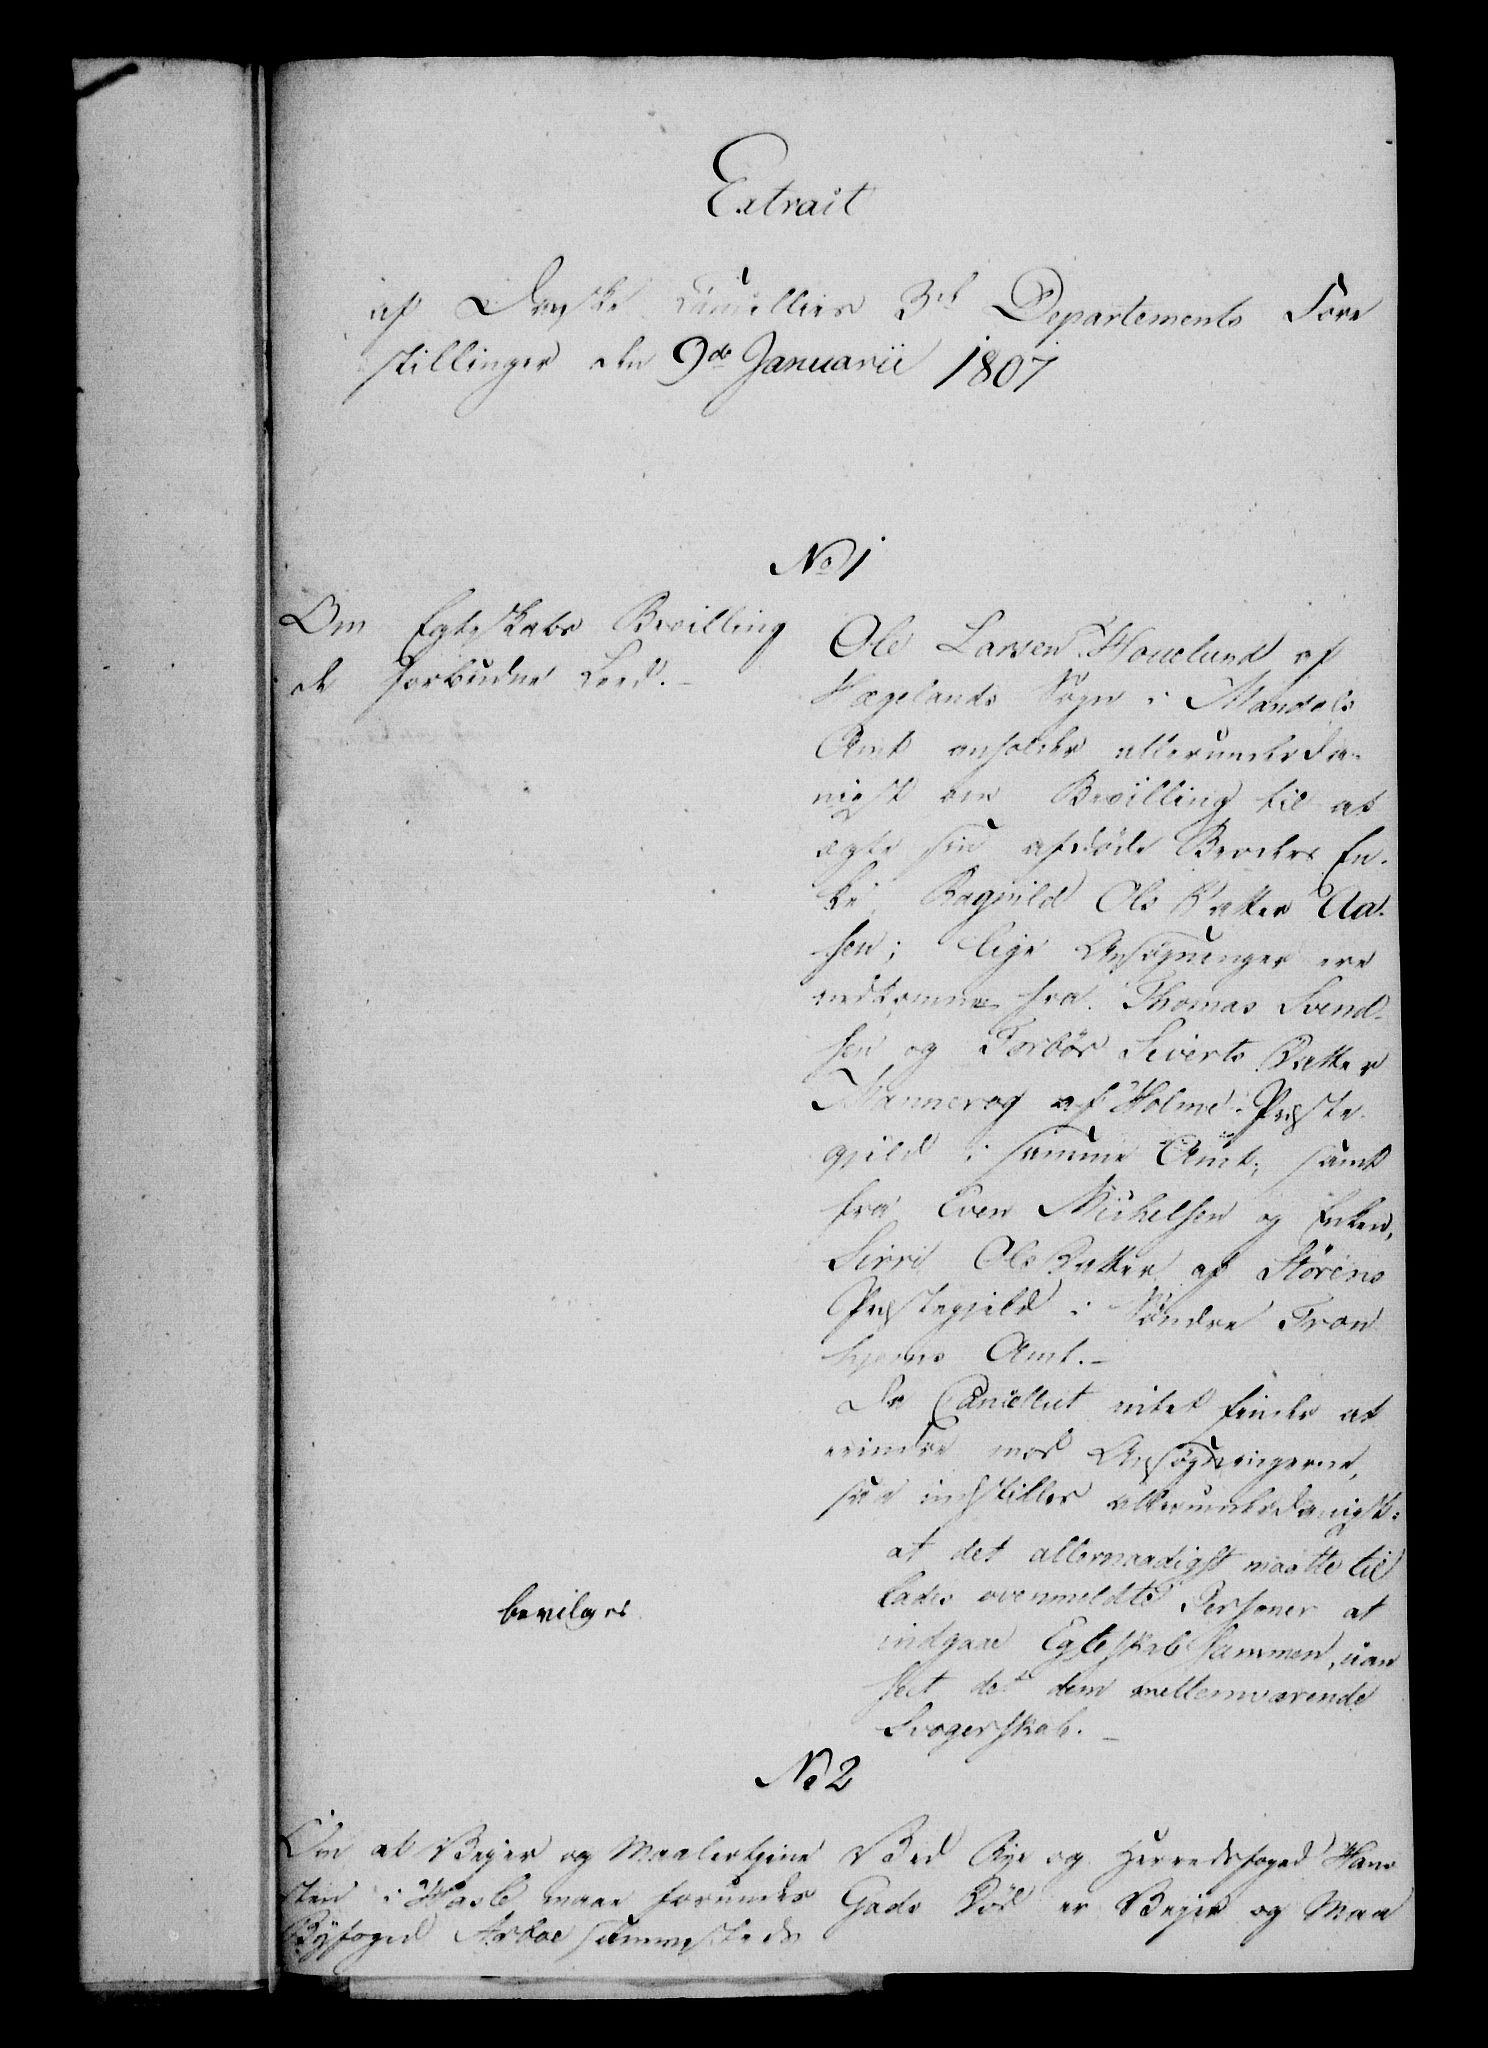 Extrait
af Danske Cancellies 3de Departements Fore
stillinger den 9de Januarii 1807
No 1
Om Egteskabs Bevilling
de forbudne Leed.-
Ole Larsen Houelund af
Hægelands Sogn i Mandals
Amt anholder allerunderda-
nigst om Bevilling til at
ægte sin afdøde Broders En-
ke Ragnild Ols Datter Aa-
sen; lige Ansøgninger ere
indkomne fra Thomas Svend-
sen og Torbör Siverts Datter
Mannerog af Holme Præste-
gield i samme Amt; samt
fra Even Mikkelsen og Enken,
Sirri Ols Datter af Störens
Præstegield i Søndre Tron
hjems Amt.-
Da Cancelliet intet finder at
erindre mod Ansøgningerne,
saa indstilles allerunderdanigst:
at det allernaadigst maatte til
lades ovenmeldte Personer at
indgaae Egteskab sammen, uan
seet det dem mellemværende
Svogerskab.-
bevilges
No 2
Om at Vejer og Maalertjene
sten i Hasle maae forundes
Byfoged Arboe sammesteds
Ved Bye og Herredsfoged Hans
Gads Död er Vejer og Maa